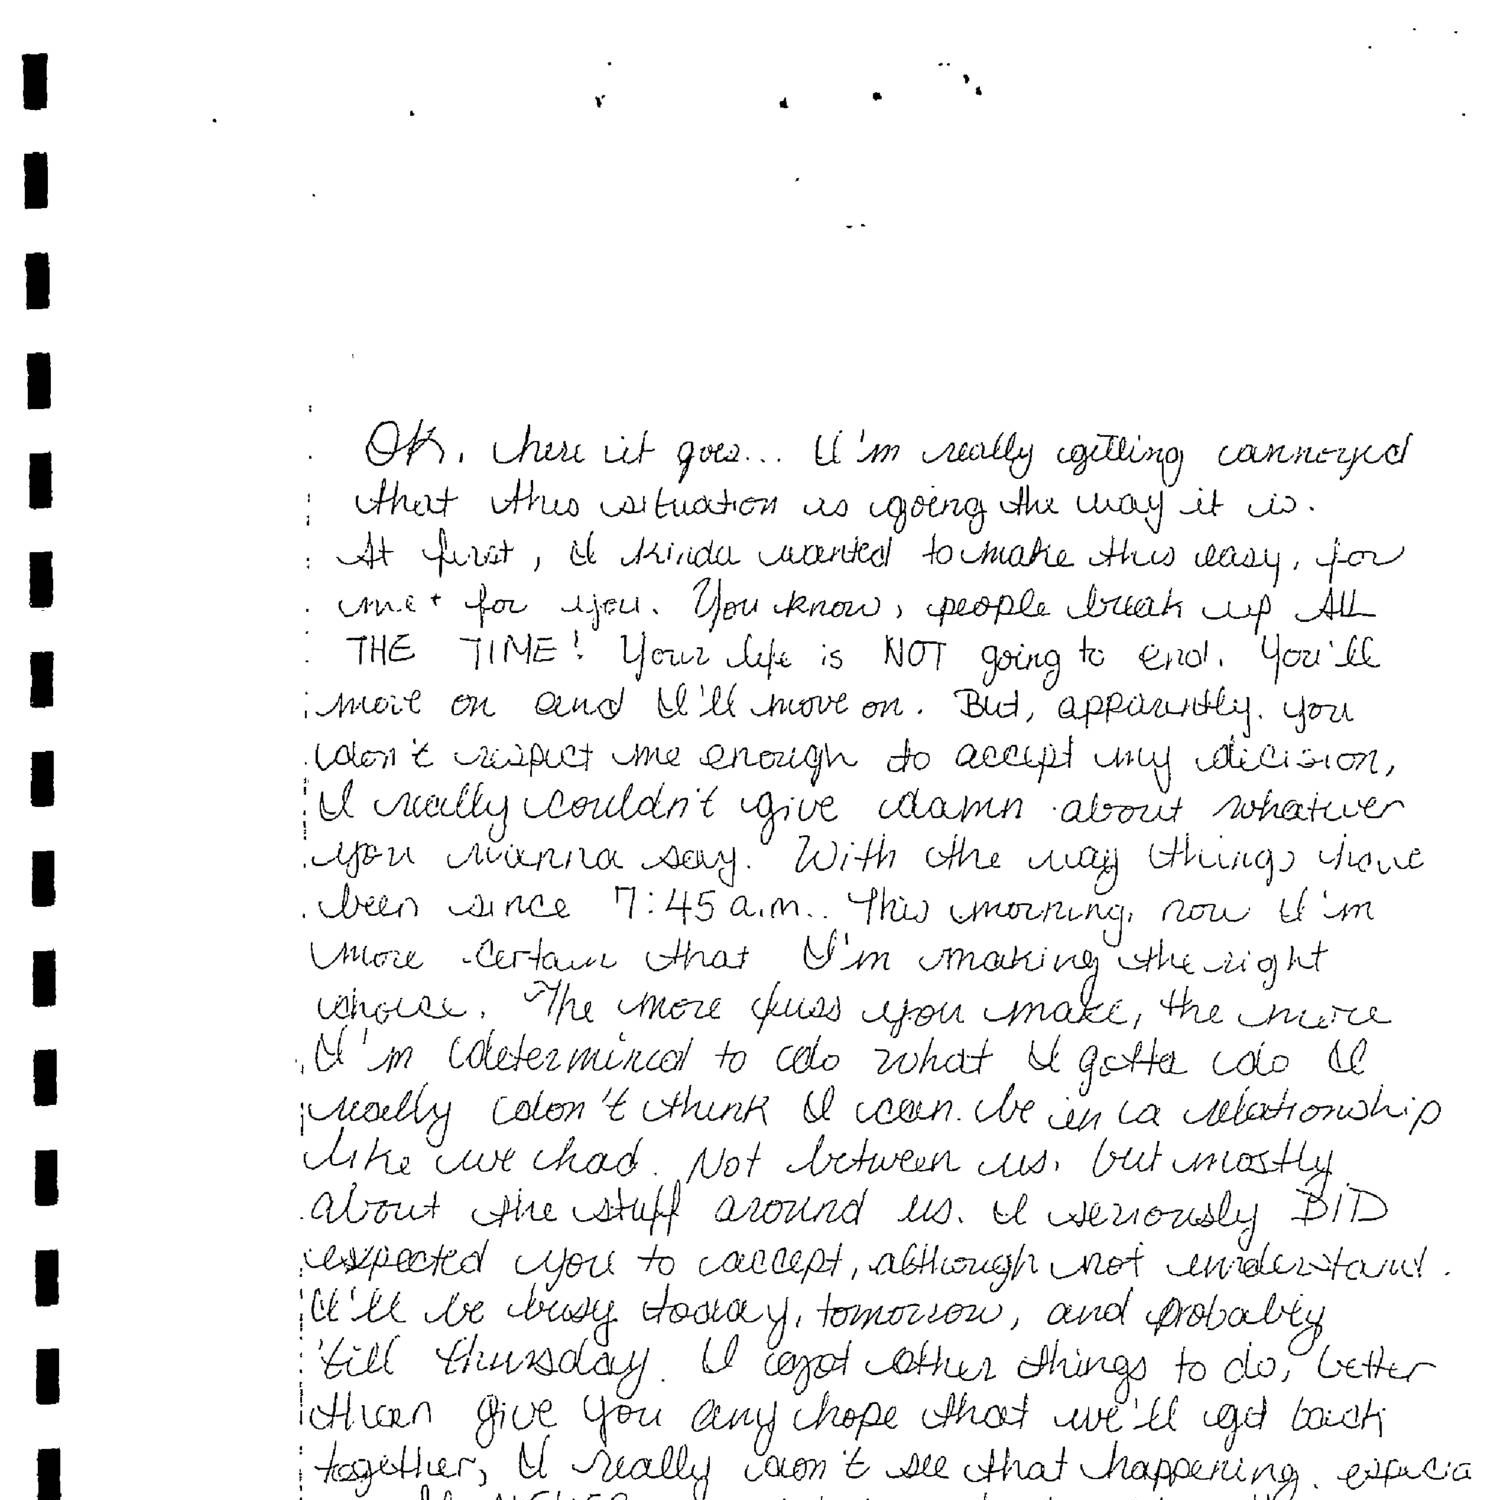 OK, here it goes... I'm really getting annoyed
that this situation is going the way it is.
At first, I kinda wanted to make this easy, for
me + for you. You know, people break up ALL
THE TIME! Your life is NOT going to end. You'll
move on and I'll move on. But, apparently, you
don't respect me enough to accept my decision,
I really couldn't give damn about whatever
you wanna say. With the way things have
been since 7:45 a.m.. This morning, now I'm
more certain that I'm making the right
choice. The more fuss you make, the more
I'm determined to do what I gotta do I
really don't think I can be in a relationship
like we had. Not between us, but mostly
about the stuff around us. I seriously DID
expected you to accept, although not understand.
I'll be busy today, tomorrow, and probably
'till thursday. I got other things to do, better
than give you any hope that we'll get back
together, I really don't see that happening. especia